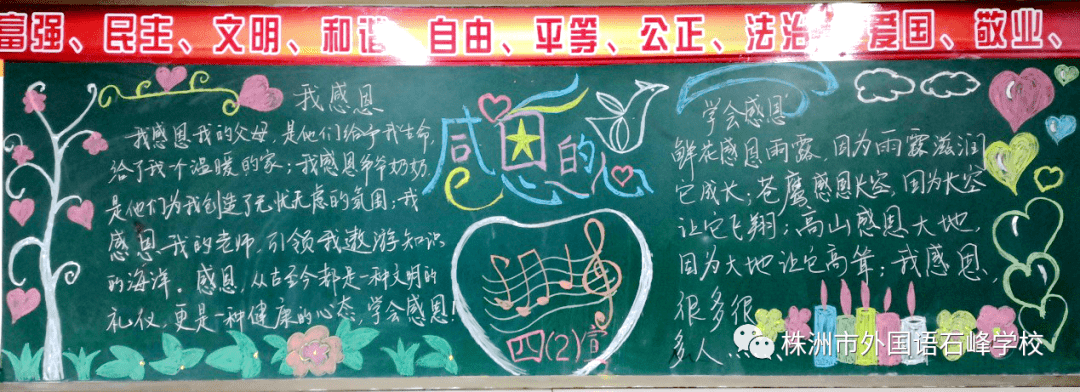 富强、民主、文明、和谐 自由、平等、公正、法治 爱国、敬业、
我感恩
我感恩我的父母,是他们给予我生命,
给了我个温暖的家;我感恩爷爷奶奶,
是他们为我创造了无忧无虑的氛围;我
感恩我的老师,引领我遨游知识
的海洋。感恩,从古至今都是一种文明的
礼仪,更是一种健康的心态,学会感恩!
感恩的心
四(2)宣
学会感恩
鲜花感恩雨露,因为雨露滋润
它成长;苍鹰感恩长空,因为长空
让它飞翔;高山感恩大地,
因为大地让它高耸;我感恩,
很多很
多人……
株洲市外国语石峰学校